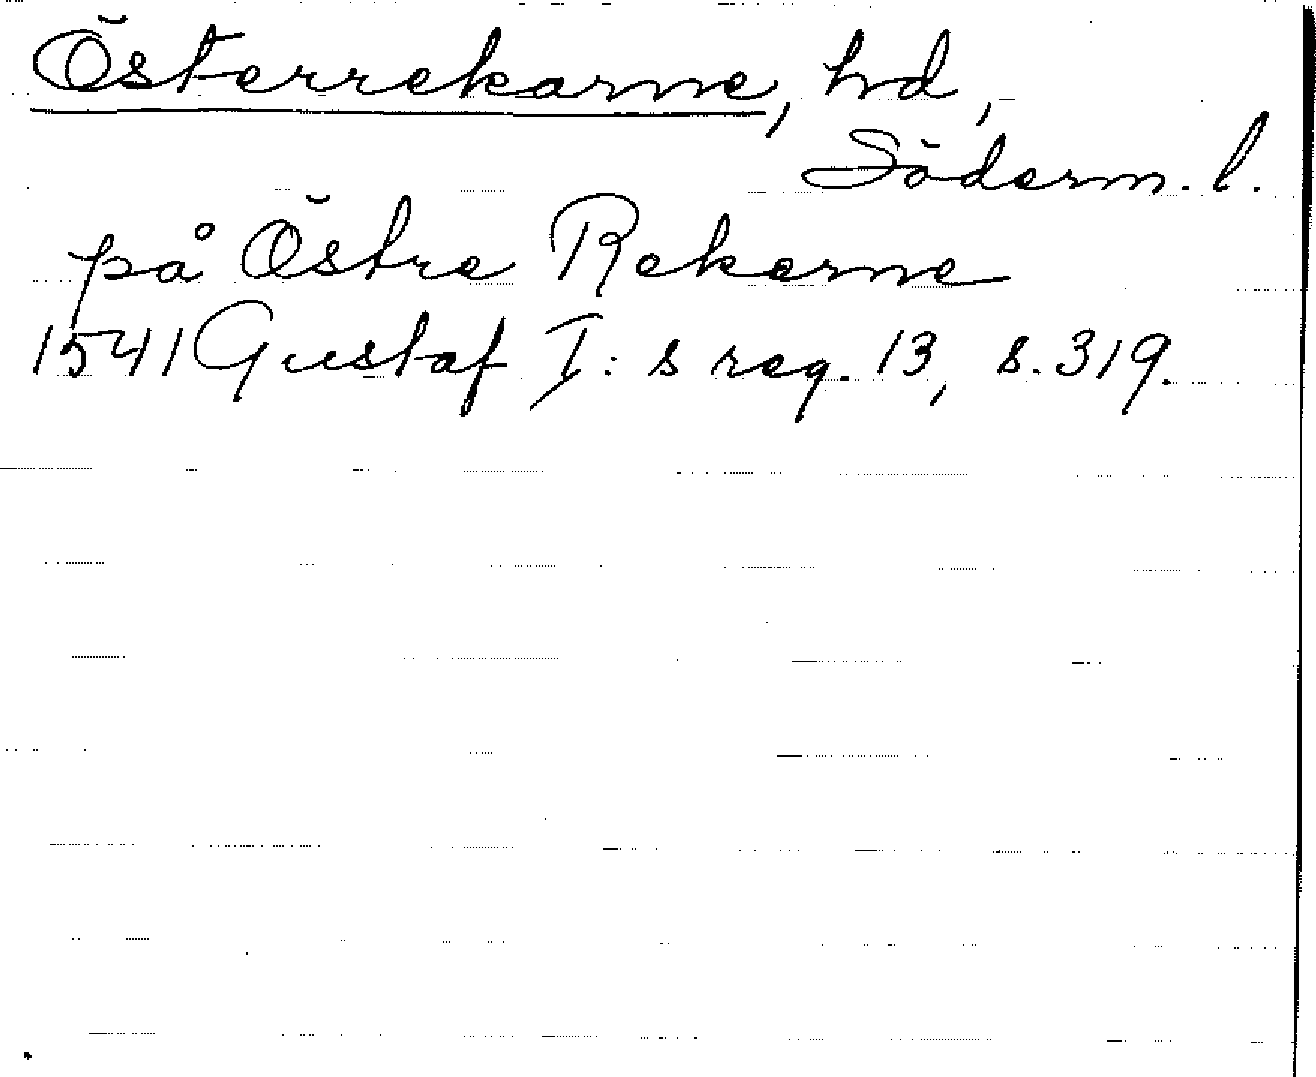 Österrekarne, hd,
Söderm. l.
på Östre Rekerne
1541 Gustaf I: s reg. 13, s. 319.